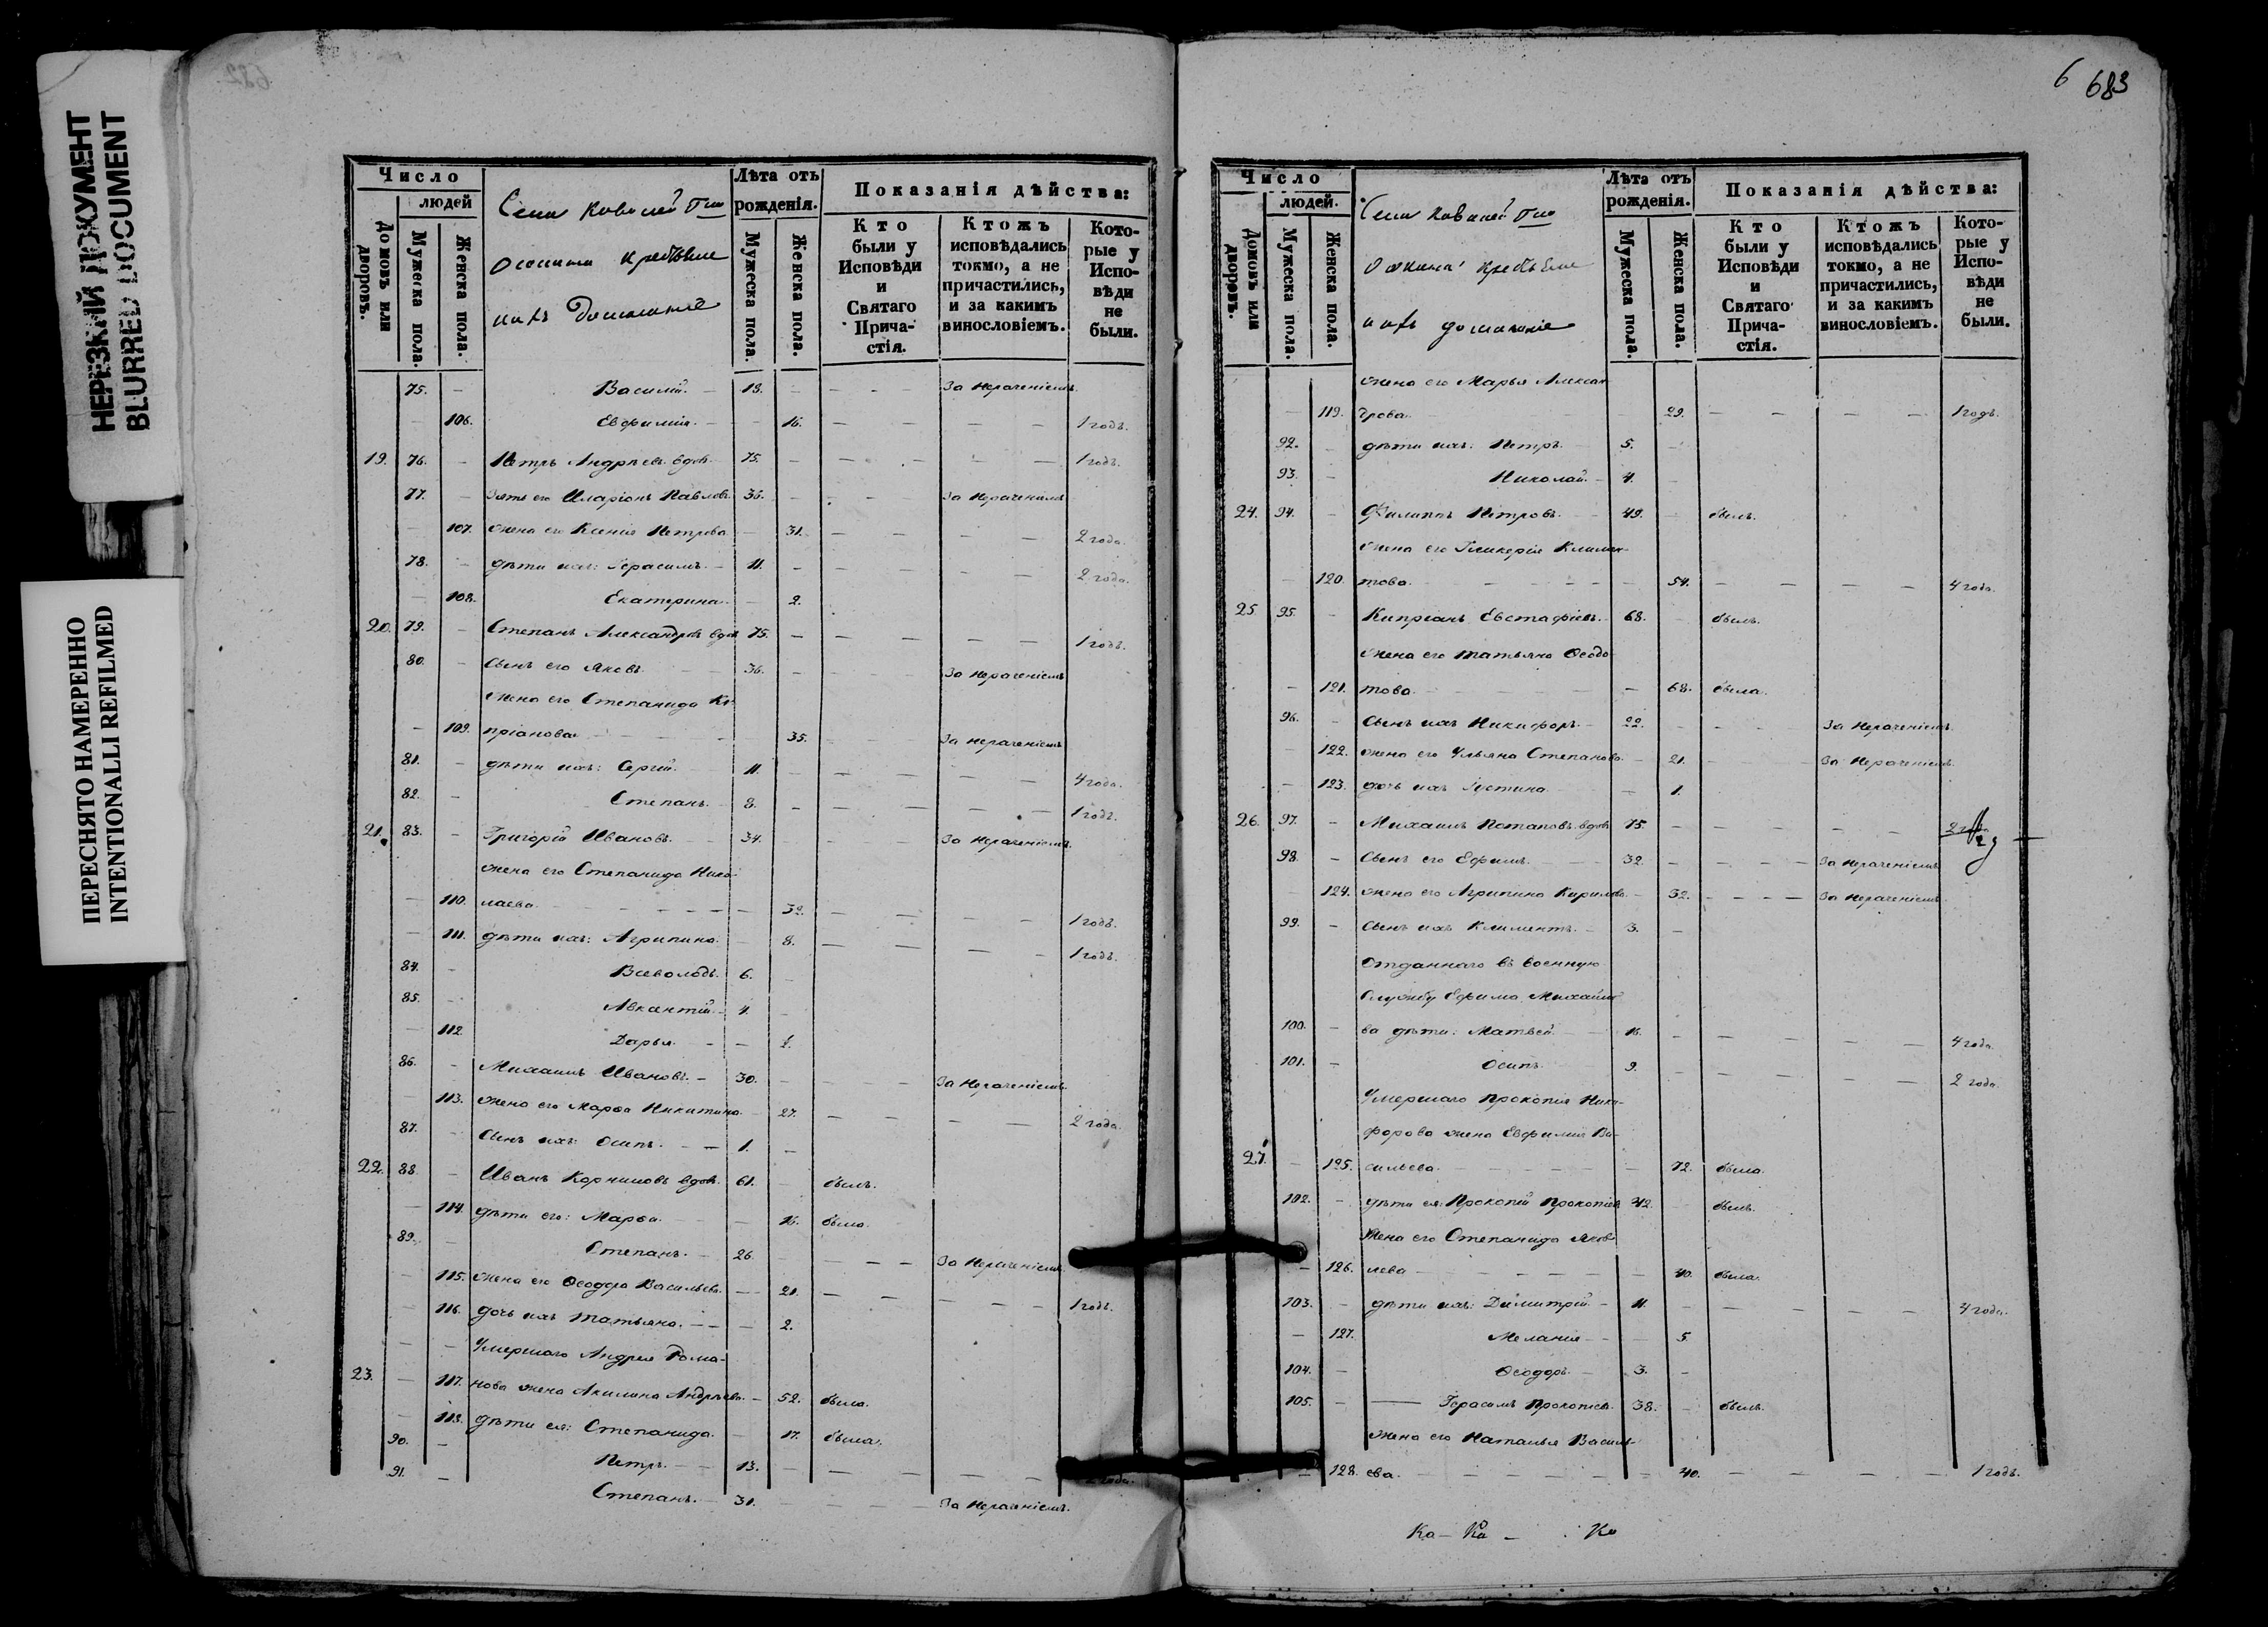 НЕРЕЗКИЙ ДОКУМЕНТ
BLURRED DOCUMENT
ПЕРЕСНЯТО НАМЕРЕННО
INTENTIONALLI REFILMED
Число
людей
Домовъ или дворовъ.
Мужеска пола.
Женска пола.
Села
их домашніе
Лѣта отъ рожденія.
Мужеска пола.
Женска пола.
Показанія дѣйства:
Кто были у Исповѣди и Святаго Причастія.
Ктожъ исповѣдались токмо, а не причастились, и за какимъ винословіемъ.
Которые у Исповѣди не были.
75. — Василій. — 18. — — — За нераченіемъ.
— 106. Евфимія. — — 16. — — — — 1 годъ.
19. 76. — Петръ Андреевъ вдов. 75. — — — — — 1 годъ.
77. — Зять его Иларіонъ Павловъ. 36. — — — За нераченіемъ
— 107. жена его Ксенія Петрова — 31. — — — — 2 года.
78. — дѣти ихъ: Герасимъ. — 11. — — — — — 2 года.
— 108. Екатерина. — 2.
20. 79. — Степанъ Александровъ вдов 75. — — — — — 1 годъ.
80. — Сынъ его Яковъ. 36. — — — За нераченіемъ
жена его Степанида Ки-
— 109. пріанова — — — — 35. — — За нераченіемъ
81. — дѣти ихъ: Сергій. 11. — — — — — 4 года.
82. — Степанъ. 8. — — — — — 1 годъ.
21. 83. — Григорій Ивановъ. 34. — — — За нераченіемъ.
жена его Степанида Нико-
— 110. лаева. — — — — — 32. — — — — 1 годъ.
— 111. дѣти ихъ: Агрипина. — 8. — — — — 1 годъ.
84. — Всеволодъ. 6. —
85. — 4. —
— 112 Дарья. — — 1.
86. — Михаилъ Ивановъ. — 30. — — — За нераченіемъ.
— 113. жена его Марфа Никитина — 27. — — — — 2 года.
87. — Сынъ ихъ: Осипъ. — — 1. —
22. 88. — Иванъ Корниловъ вдов. 61. — былъ.
— 114. дѣти его: Марфа. — 16. была.
89. — Степанъ. 26. — — — За нераченіемъ.
— 115. жена его Ѳеодора Васильева. — 21. — — — — 1 годъ.
— 116. дочь ихъ Татьяна. — — — 2.
— — Умершаго Андрея Рома-
23. — 117. нова жена Акилина Андреева. — 52. была.
— 118. дѣти ея: Степанида. — 17. была.
90. — Петръ. — — 13. — — — — — года.
91. — Степанъ. — 31. — — — — За нераченіемъ.
6 683
Число
людей.
Домовъ или дворовъ.
Мужеска пола.
Женска пола.
Села
ихъ домашніе
Лѣта отъ рожденія.
Мужеска пола.
Женска пола.
Показанія дѣйства:
Кто были у Исповѣди и Святаго Причастія.
Ктожъ исповѣдались токмо, а не причастились, и за какимъ винословіемъ.
Которые у Исповѣди не были.
жена его Марья Алексан-
— 119. дрова. — — 29. — — — — 1 годъ.
92. — дѣти ихъ: Петръ. 5. —
93. — Николай. — 4. —
24. 94. — Филиппъ Петровъ. — 49. — былъ.
жена его Гликерія Климен-
— 120. това. — — — — — 54. — — — — 4 года.
25. 95. — Кипріанъ Евстафіевъ. 68. — былъ.
жена его Татьяна Ѳеодо-
— 121. това. — — — — — 68. была.
96. — Сынъ ихъ Никифоръ. — 22. — — — За нераченіемъ.
— 122. жена его Ульяна Степанова. — 21. — — За нераченіемъ.
— 123. дочь ихъ Іустина — 1.
26. 97. — Михаилъ Потаповъ вдовъ 75. — — — — —
98. — Сынъ его Ефимъ. — — 32. — — — — За нераченіемъ
— 124. жена его Агрипина Кирилова. — 32. — — — — За нераченіемъ.
99. — Сынъ ихъ Климентъ. — 3. —
Отданнаго въ военную
службу Ефима Михайло-
100. — ва дѣти: Матвѣй. — 16. — — — — — 4 года.
101. — Осипъ. 9. — — — — — 2 года.
Умершаго Прокопія Ники-
форова жена Евфимія Ва-
27. — 125. сильева. — — — — — 72. была.
102. — дѣти ея: Прокопій Прокопіевъ 42. — былъ.
жена его Степанида Яков-
— 126. лева — — — — — 40. была.
103. — дѣти ихъ: Димитрій. — 11. — — — — — 4 года.
— 127. Меланія — — — 5.
104. — Ѳеодоръ. — 3. —
105. — — Герасимъ Прокопіевъ. 38. — былъ.
жена его Наталья Василь-
— 128. ева. — — — — — 40. — — — — 1 годъ.